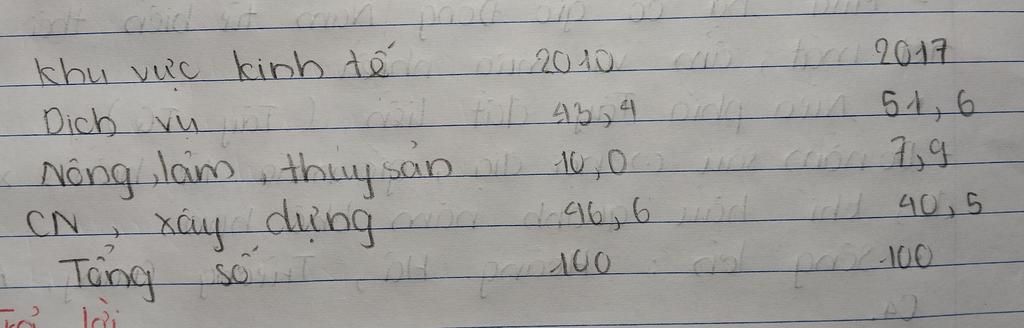 Khu vực kinh tế 2010 2017
Dịch vụ 43,4 51,6
Nông, lâm, thủy sản 10,0 7,9
CN, xây dựng 46,6 40,5
Tổng số 100 100
Trả lời